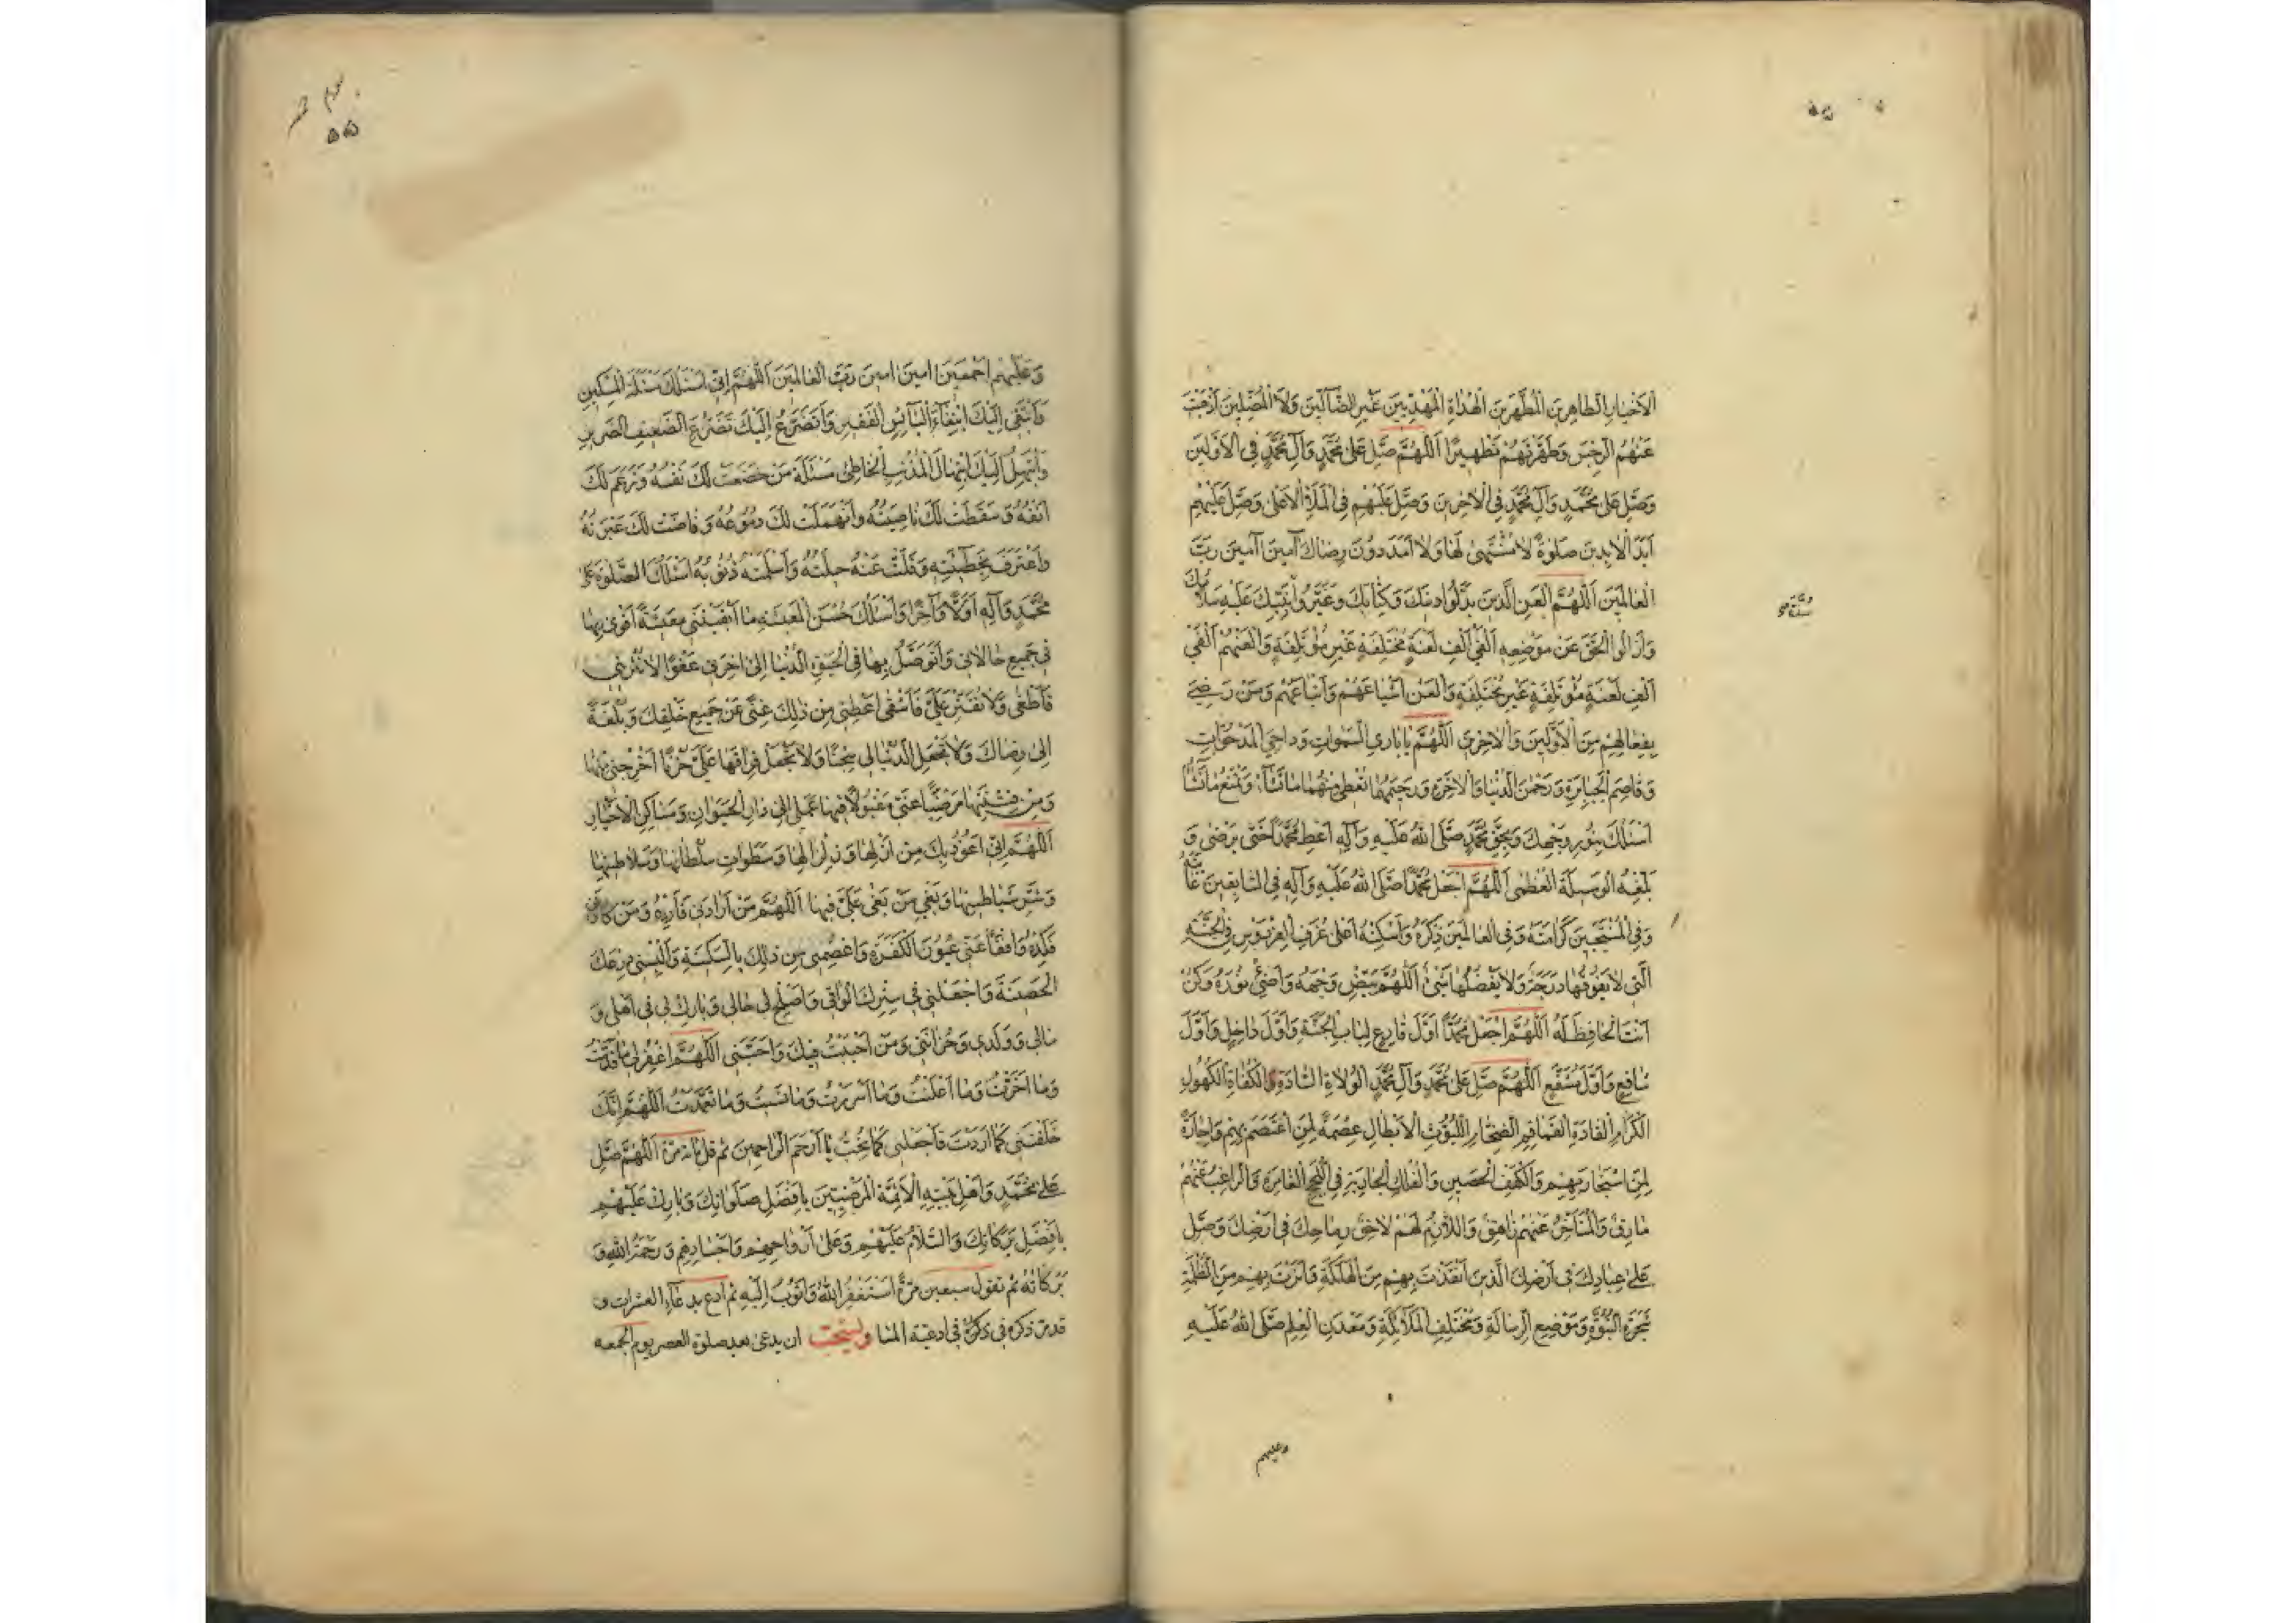 الاَخْيارِ الطاهِرينَ المُطَهَّرينَ الهُداةِ المَهْدِيّينَ غَيْرِ الضّآلّينَ وَلاَ المُضِلّينَ اَذْهَبْتَ
عَنْهُمُ الرِّجْسَ وَطَهَّرْتَهُمْ تَطْهيرًا اَللّهُمَّ صَلِّ عَلى مُحَمَّدٍ وَآلِ مُحَمَّدٍ فِي الاَوَّلينَ
وَصَلِّ عَلى مُحَمَّدٍ وَآلِ مُحَمَّدٍ فِي الاخِرينَ وَصَلِّ عَلَيْهِمْ فِي المَلَاِ الاَعْلى وَصَلِّ عَلَيْهِمْ
اَبَدَ الابِدينَ صَلوةً لا مُنْتَهى لَها وَلا اَمَدَ دوُنَ رِضاكَ آمينَ آمينَ رَبَّ
العالَمينَ اَللّهُمَّ العَنِ الَّذينَ بَدَّلوُا دينَكَ وَكِتابَكَ وَغَيَّروُا نَبِيِّكَ عَلَيْهِ سَلامُكَ
سُنَّةَ
وَاَزالوُا الحَقَّ عَنْ مَوْضِعِهِ اَلْفَيْ اَلْفِ لَعْنَةٍ مُخْتَلِفَةٍ غَيْرِ مُؤْتَلِفَةٍ وَالْعَنْهُمْ اَلْفَيْ
اَلْفِ لَعْنَةٍ مُؤْتَلِفَةٍ غَيْرِ مُخْتَلِفَةٍ وَالعَنْ اَشْياعَهُمْ وَاَتْباعَهُمْ وَمَنْ رَضِيَ
بِفِعالِهِمْ مِنَ الاَوَّلينَ وَالاخِرينَ اَللّهُمَّ يا بارِئَ السَّمواتِ وَداحِيَ المَدْحُوّاتِ
وَقاصِمَ الجَبابِرَةِ وَرَحْمنَ الدُّنْيا وَالاخِرَةِ وَرَحيمَهُما تُعْطي مِنْهُما ما تَشآءُ وَتَمْنَعُ ما تَشآءُ
اَسْئَلُكَ بِنوُرِ وَجْهِكَ وَبِحَقِّ مُحَمَّدٍ صَلَّى اللهُ عَلَيْهِ وَآلِهِ اَعْطِ مُحَمَّدًا حَتّى يَرْضى وَ
بَلِّغْهُ الوَسيلَةَ العُظْمى اَللّهُمَّ اجْعَلْ مُحَمَّدًا صَلَّى اللهُ عَلَيْهِ وَآلِهِ فِي السّابِقينَ غايَتَهُ
وَفِي المُنْتَجَبينَ كَرامَتَهُ وَفِي العالَمينَ ذِكْرَهُ وَاَسْكِنْهُ اَعْلى غُرَفِ الفِرْدَوْسِ فِي الجَنَّةِ
الَّتي لا يَفوُقُها دَرَجَةٌ وَلا يَفْضُلُها شَيْءٌ اَللّهُمَّ بَيِّضْ وَجْهَهُ وَاَضِئْ نوُرَهُ وَكُنْ
اَنْتَ الحافِظَ لَهُ اَللّهُمَّ اجْعَلْ مُحَمَّدًا اَوَّلَ قارِعٍ لِبابِ الجَنَّةِ وَاَوَّلَ داخِلٍ وَاَوَّلَ
شافِعٍ وَاَوَّلَ مُشَفَّعٍ اَللّهُمَّ صَلِّ عَلى مُحَمَّدٍ وَآلِ مُحَمَّدٍ الوُلاةِ السّادَةِ الكُفاةِ الكُهوُلِ
الكِرامِ القادَةِ القَماقِمِ الضِّخامِ اللُّيوُثِ الاَبْطالِ عِصْمَةً لِمَنِ اعْتَصَمَ بِهِمْ وَاِجارَةً
لِمَنِ اسْتَجارَ بِهِمْ وَالكَهْفِ الحَصينِ وَالفُلْكِ الجارِيَةِ فِي اللُّجَجِ الغامِرَةِ وَالرّاغِبُ عَنْهُمْ
مارِقٌ وَالمُتَاَخِّرُ عَنْهُمْ زاهِقٌ وَاللّازِمُ لَهُمْ لاحِقٌ رِماحِكَ في اَرْضِكَ وَصَلِّ
عَلى عِبادِكَ في اَرْضِكَ الَّذينَ اَنْقَذْتَ بِهِمْ مِنَ الهَلَكَةِ وَاَنَرْتَ بِهِمْ مِنَ الظُّلْمَةِ
شَجَرَةِ النُّبُوَّةِ وَمَوْضِعِ الرِّسالَةِ وَمُخْتَلَفِ المَلآئِكَةِ وَمَعْدَنِ العِلْمِ صَلَّى اللهُ عَلَيْهِ
وعليهم
۵۵
وَعَلَيْهِمْ اَجْمَعينَ امينَ امينَ رَبَّ العالَمينَ اَللّهُمَّ اِنّي اَسْئَلُكَ مَسْئَلَةَ المِسْكينِ
وَاَبْتَغي اِلَيْكَ ابْتِغآءَ البآئِسِ الفَقيرِ وَاَتَضَرَّعُ اِلَيْكَ تَضَرُّعَ الضَّعيفِ الضَّريرِ
وَاَبْتَهِلُ اِلَيْكَ ابْتِهالَ المُذْنِبِ الخاطِئِ مَسْئَلَةَ مَنْ خَضَعَتْ لَكَ نَفْسُهُ وَرَغِمَ لَكَ
اَنْفُهُ وَسَقَطَتْ لَكَ ناصِيَتُهُ وَانْهَمَلَتْ لَكَ دُموُعُهُ وَفاضَتْ لَكَ عَبْرَتُهُ
وَاعْتَرَفَ بِخَطيئَتِهِ وَقَلَّتْ عَنْهُ حيلَتُهُ وَاَسْلَمَتْهُ ذُنوُبُهُ اَسْئَلُكَ الصَّلوةَ عَلى
مُحَمَّدٍ وَآلِهِ اَوَّلاً وَآخِرًا وَاَسْئَلُكَ حُسْنَ المَعيشَةِ ما اَبْقَيْتَني مَعيشَةً اَقْوى بِها
في جَميعِ حالاتي وَاَتَوَصَّلُ بِها فِي الحَيوةِ الدُّنْيا اِلى اخِرَتي عَفْوًا لا تُتْرِفْني
فَاَطْغى وَلا تُقَتِّرْ عَلَيَّ فَاَشْقى اَعْطِني مِنْ ذلِكَ غِنًى عَنْ جَميعِ خَلْقِكَ وَبُلْغَةً
اِلى رِضاكَ وَلا تَجْعَلِ الدُّنْيا لي سِجْنًا وَلا تَجْعَلْ فِراقَها عَلَيَّ حُزْنًا اَخْرِجْني مِنْها
وَمِنْ فِتْنَتِها مَرْضِيًّا عَنّي مَقْبوُلاً فيها عَمَلي اِلى دارِ الحَيَوانِ وَمَساكِنِ الاَخْيارِ
اَللّهُمَّ اِنّي اَعوُذُ بِكَ مِنْ اَزْلِها وَزِلْزالِها وَسَطَواتِ سُلْطانِها وَسَلاطينِها
وَشَرِّ شَياطينِها وَبَغْيِ مَنْ بَغى عَلَيَّ فيها اَللّهُمَّ مَنْ اَرادَني فَاَرِدْهُ وَمَنْ كادَني
فَكِدْهُ وَافْقَأْ عَنّي عُيوُنَ الكَفَرَةِ وَاعْصِمْني مِنْ ذلِكَ بِالسَّكينَةِ وَاَلْبِسْني دِرْعَكَ
الحَصينَةَ وَاجْعَلْني في سِتْرِكَ الواقي وَاَصْلِحْ لي حالي وَبارِكْ لي في اَهْلي وَ
مالي وَوَلَدي وَحُزانَتي وَمَنْ اَحْبَبْتُ فيكَ وَاَحَبَّني اَللّهُمَّ اغْفِرْ لي ما قَدَّمْتُ
وَما اَخَّرْتُ وَما اَعْلَنْتُ وَما اَسْرَرْتُ وَما نَسيتُ وَما تَعَمَّدْتُ اَللّهُمَّ اِنَّكَ
خَلَقْتَني كَما اَرَدْتَ فَاجْعَلْني كَما تُحِبُّ يا اَرْحَمَ الرّاحِمينَ ثم قل مائة مرة اَللّهُمَّ صَلِّ
عَلى مُحَمَّدٍ وَاَهْلِ بَيْتِهِ الاَئِمَّةِ المَرْضِيّينَ بِاَفْضَلِ صَلَواتِكَ وَبارِكْ عَلَيْهِمْ
بِاَفْضَلِ بَرَكاتِكَ وَالسَّلامُ عَلَيْهِمْ وَعَلى اَرْواحِهِمْ وَاَجْسادِهِمْ وَرَحْمَةُ اللهِ وَ
بَرَكاتُهُ ثم تقول سبعين مرّةً اَسْتَغْفِرُ اللهَ وَاَتوُبُ اِلَيْهِ ثم ادع بدعآء العشرات و
قد مر ذكره في ذكره في ادعية المسا ويستحب ان يدعى بعد صلوة العصر يوم الجمعه